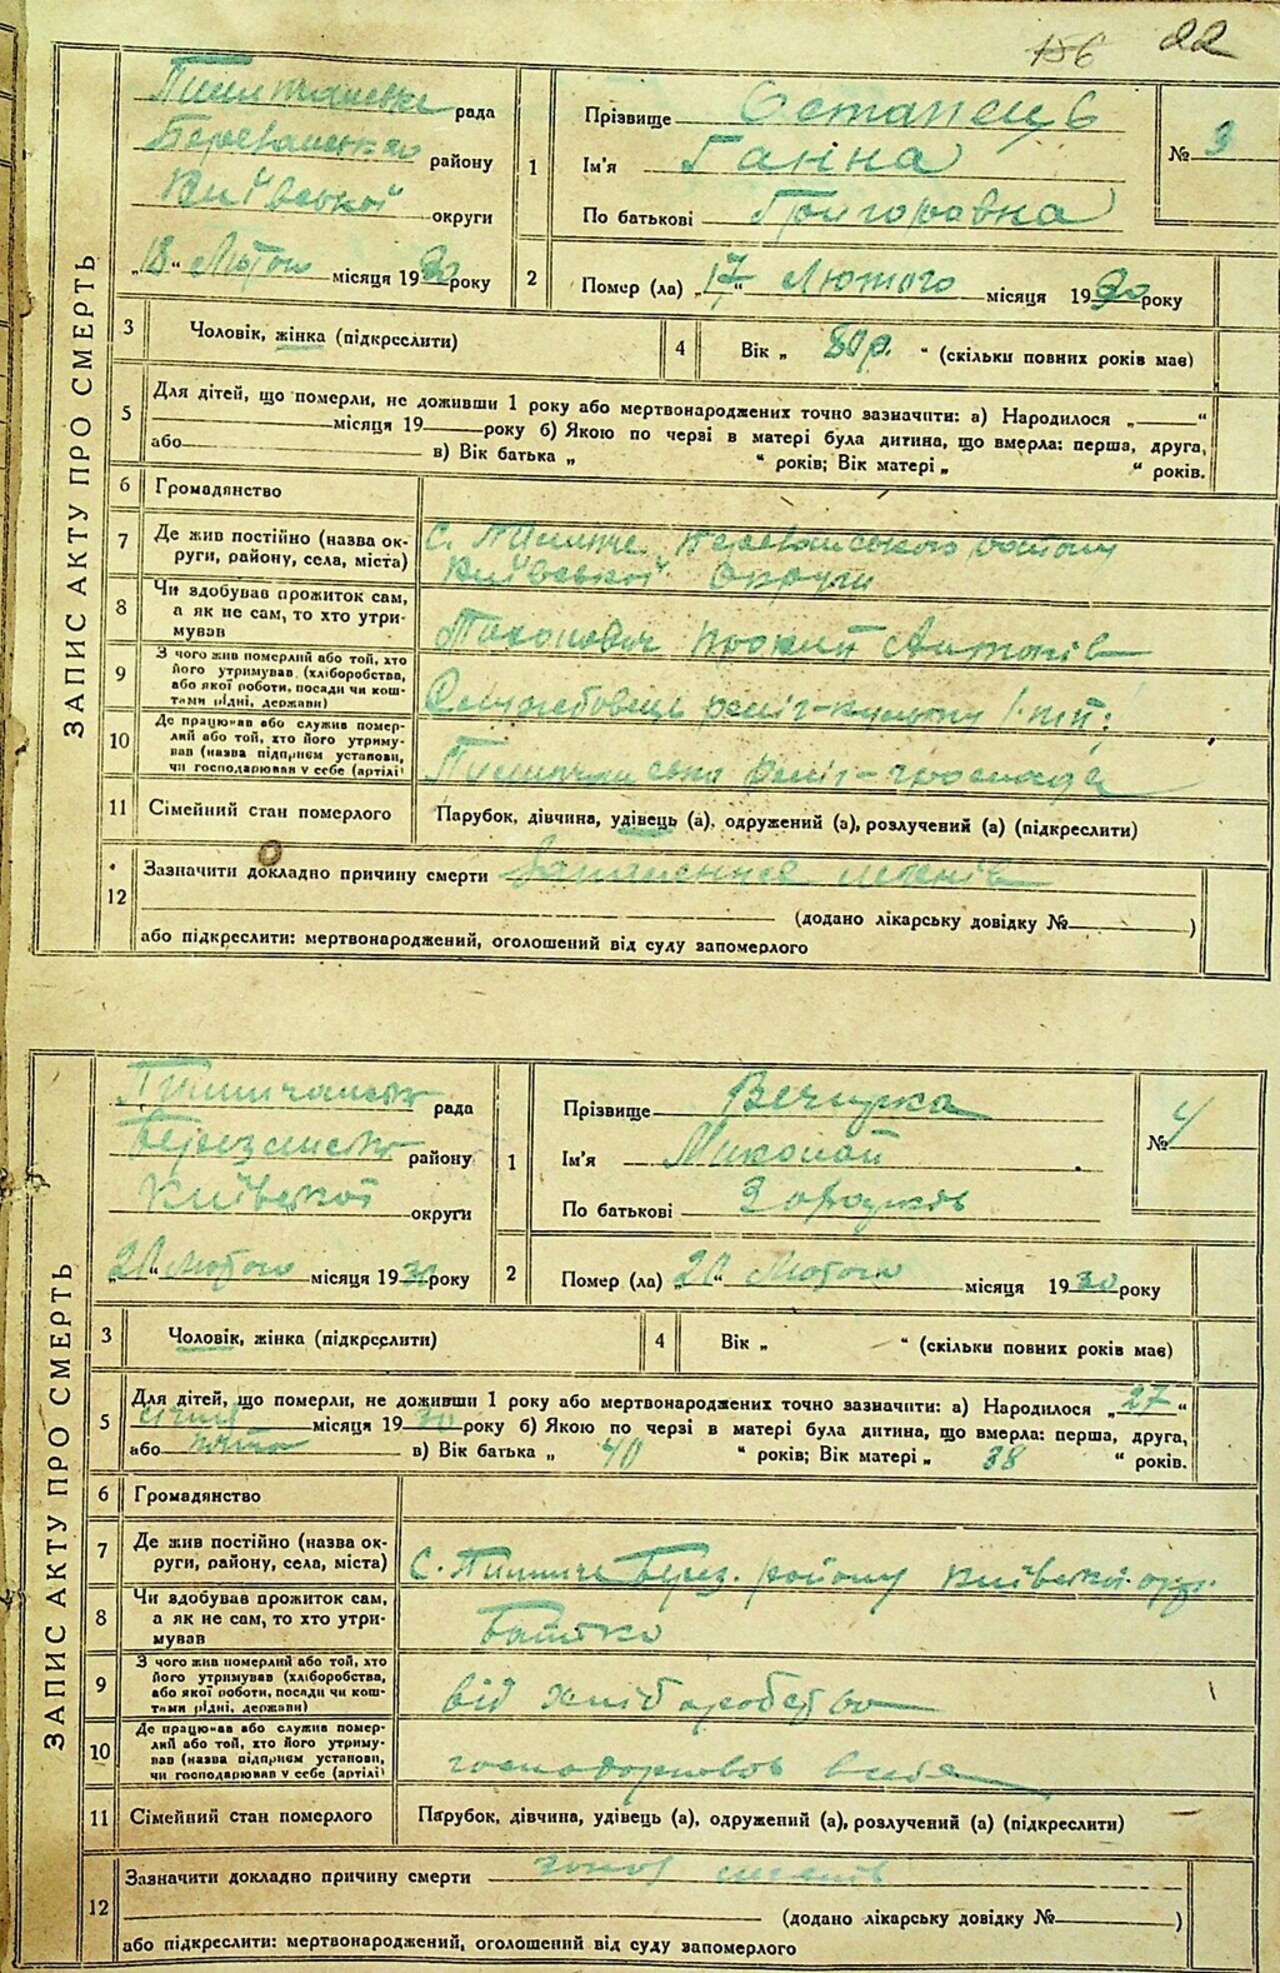 156 22
ЗАПИС АКТУ ПРО СМЕРТЬ
рада
району
Київської округи
„18“ Лютого місяця 1930 року
1
Прізвище Остапець
Ім'я Ганна
По батькові Григоровна
№ 3
2
Помер (ла) „17“ Лютого місяця 1930 року
3 Чоловік, жінка (підкреслити)
4 Вік „ 80 р. “ (скільки повних років має)
5 Для дітей, що померли, не доживши 1 року або мертвонароджених точно зазначити: а) Народилося „ “
місяця 19 року б) Якою по черзі в матері була дитина, що вмерла: перша, друга,
або в) Вік батька „ “ років; Вік матері „ “ років.
6 Громадянство
7 Де жив постійно (назва ок-
руги, району, села, міста)
С. району
Київської Округи
8 Чи здобував прожиток сам,
а як не сам, то хто утри-
мував
9 З чого жив померлий або той, хто
його утримував (хліборобства,
або якої роботи, посади чи кош-
тами рідні, держави)
10 Де працював або служив помер-
лий або той, хто його утриму-
вав (назва підприєм установи,
чи господарював у себе (артілі)
реліг-громада
11 Сімейний стан померлого
Парубок, дівчина, удівець (а), одружений (а), розлучений (а) (підкреслити)
12 Зазначити докладно причину смерти Запаленння легенів
(додано лікарську довідку № )
або підкреслити: мертвонароджений, оголошений від суду запомерлого
ЗАПИС АКТУ ПРО СМЕРТЬ
рада
району
Київської округи
Лютого місяця 1930 року
1
Прізвище Вечирка
Ім'я Миколай
По батькові
№ 4
2
Помер (ла) Лютого місяця 1930 року
3 Чоловік, жінка (підкреслити)
4 Вік „ “ (скільки повних років має)
5 Для дітей, що померли, не доживши 1 року або мертвонароджених точно зазначити: а) Народилося „27“
січня місяця 1930 року б) Якою по черзі в матері була дитина, що вмерла: перша, друга,
або пята в) Вік батька „ 40 “ років; Вік матері „ 38 “ років.
6 Громадянство
7 Де жив постійно (назва ок-
руги, району, села, міста)
С. Берез. району Київської окр.
8 Чи здобував прожиток сам,
а як не сам, то хто утри-
мував
Батько
9 З чого жив померлий або той, хто
його утримував (хліборобства,
або якої роботи, посади чи кош-
тами рідні, держави)
від хліборобства
10 Де працював або служив помер-
лий або той, хто його утриму-
вав (назва підприєм установи,
чи господарював у себе (артілі)
господарював в себе
11 Сімейний стан померлого
Парубок, дівчина, удівець (а), одружений (а), розлучений (а) (підкреслити)
12 Зазначити докладно причину смерти легенів
(додано лікарську довідку № )
або підкреслити: мертвонароджений, оголошений від суду запомерлого